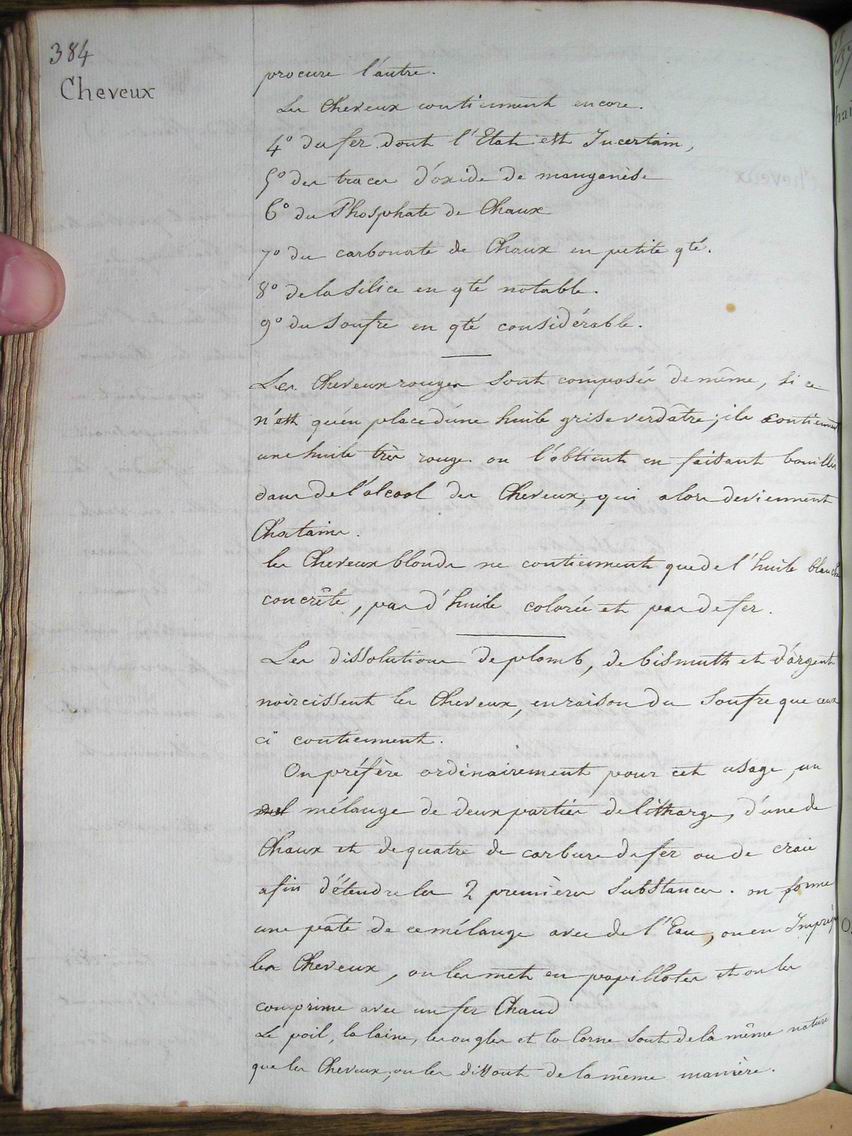 384
Cheveux
procure l'autre.
Les Cheveux contiennent encore.
4° du fer dont l'Etat est Incertain,
5° des traces d'oxide de manganèse
6° du Phosphate de Chaux
7° du carbonate de Chaux en petite qté.
8° de la Silice en qté notable.
9° du Soufre en qté considérable.
Les Cheveux rouges sont composés de même, si ce
n'est qu'en place d'une huile grise verdâtre; ils contiennent
une huile très rouge. on l'obtient en faisant bouillir
dans de l'alcool des Cheveux, qui alors deviennent
Chatains.
les Cheveux blonds ne contiennent que de l'huile blanche
concrête, pas d'huile colorée et pas de fer.
Les dissolutions de plomb, de bismuth et d'argent
noircissent les Cheveux, en raison du Soufre que ceux
ci contiennent.
On préfère ordinairement pour cet usage, un
mélange de deux parties de litharge, d'une de
Chaux et de quatre de carbure de fer ou de craie
afin d'étendre les 2 premières Substances. on forme
une pâte de ce mélange avec de l'Eau, on en Imprègne
les Cheveux, on les met en papillotes et on les
comprime avec un fer Chaud
Le poil, la laine, les ongles et la Corne sont de la même nature
que les Cheveux; on les dissout de la même manière.